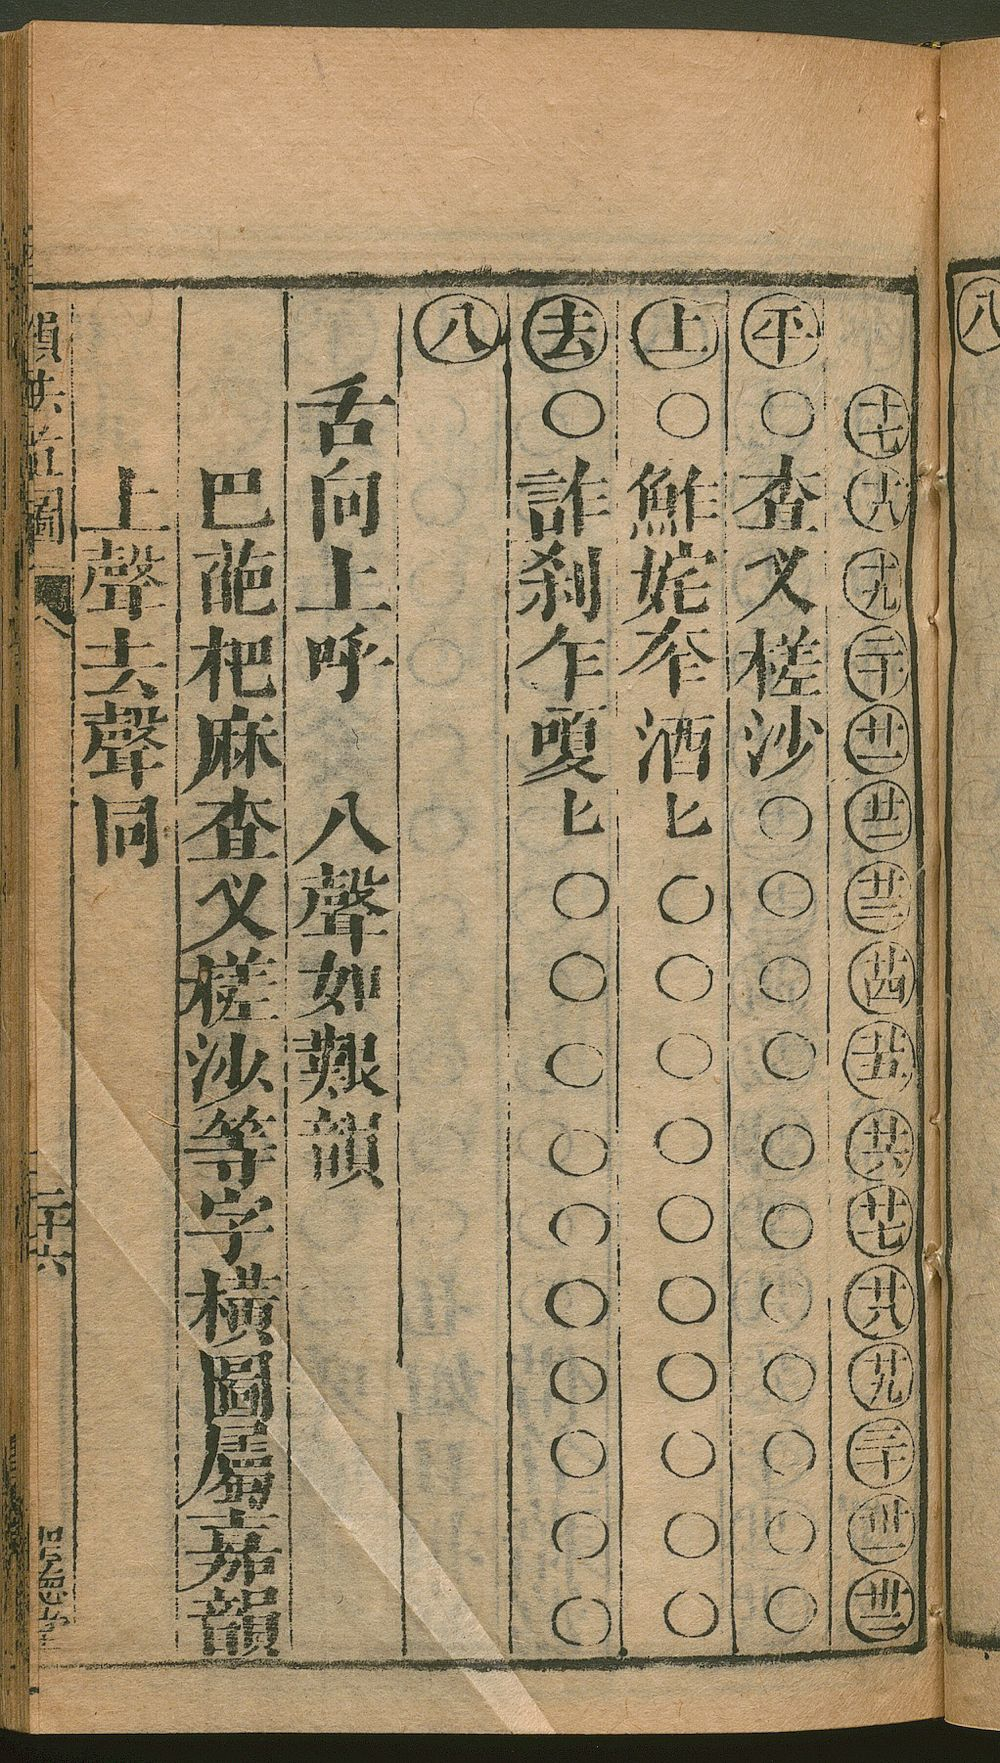 八
十七 十八 十九 二十 廿一 廿二 廿三 廿四 廿五 廿六 廿七 廿八 廿九 三十 卅一 卅二
平 ○ 查 义 槎 沙 ○ ○ ○ ○ ○ ○ ○ ○ ○ ○ ○
上 ○ 鮓 姹 洒 匕 ○ ○ ○ ○ ○ ○ ○ ○ ○ ○
去 ○ 詐 刹 乍 嗄 匕 ○ ○ ○ ○ ○ ○ ○ ○ ○ ○
八
舌向上呼 八聲如艱韻
巴葩杷麻查义槎沙等字橫圖屬嘉韻
上聲去聲同
韻法直圖 二十六